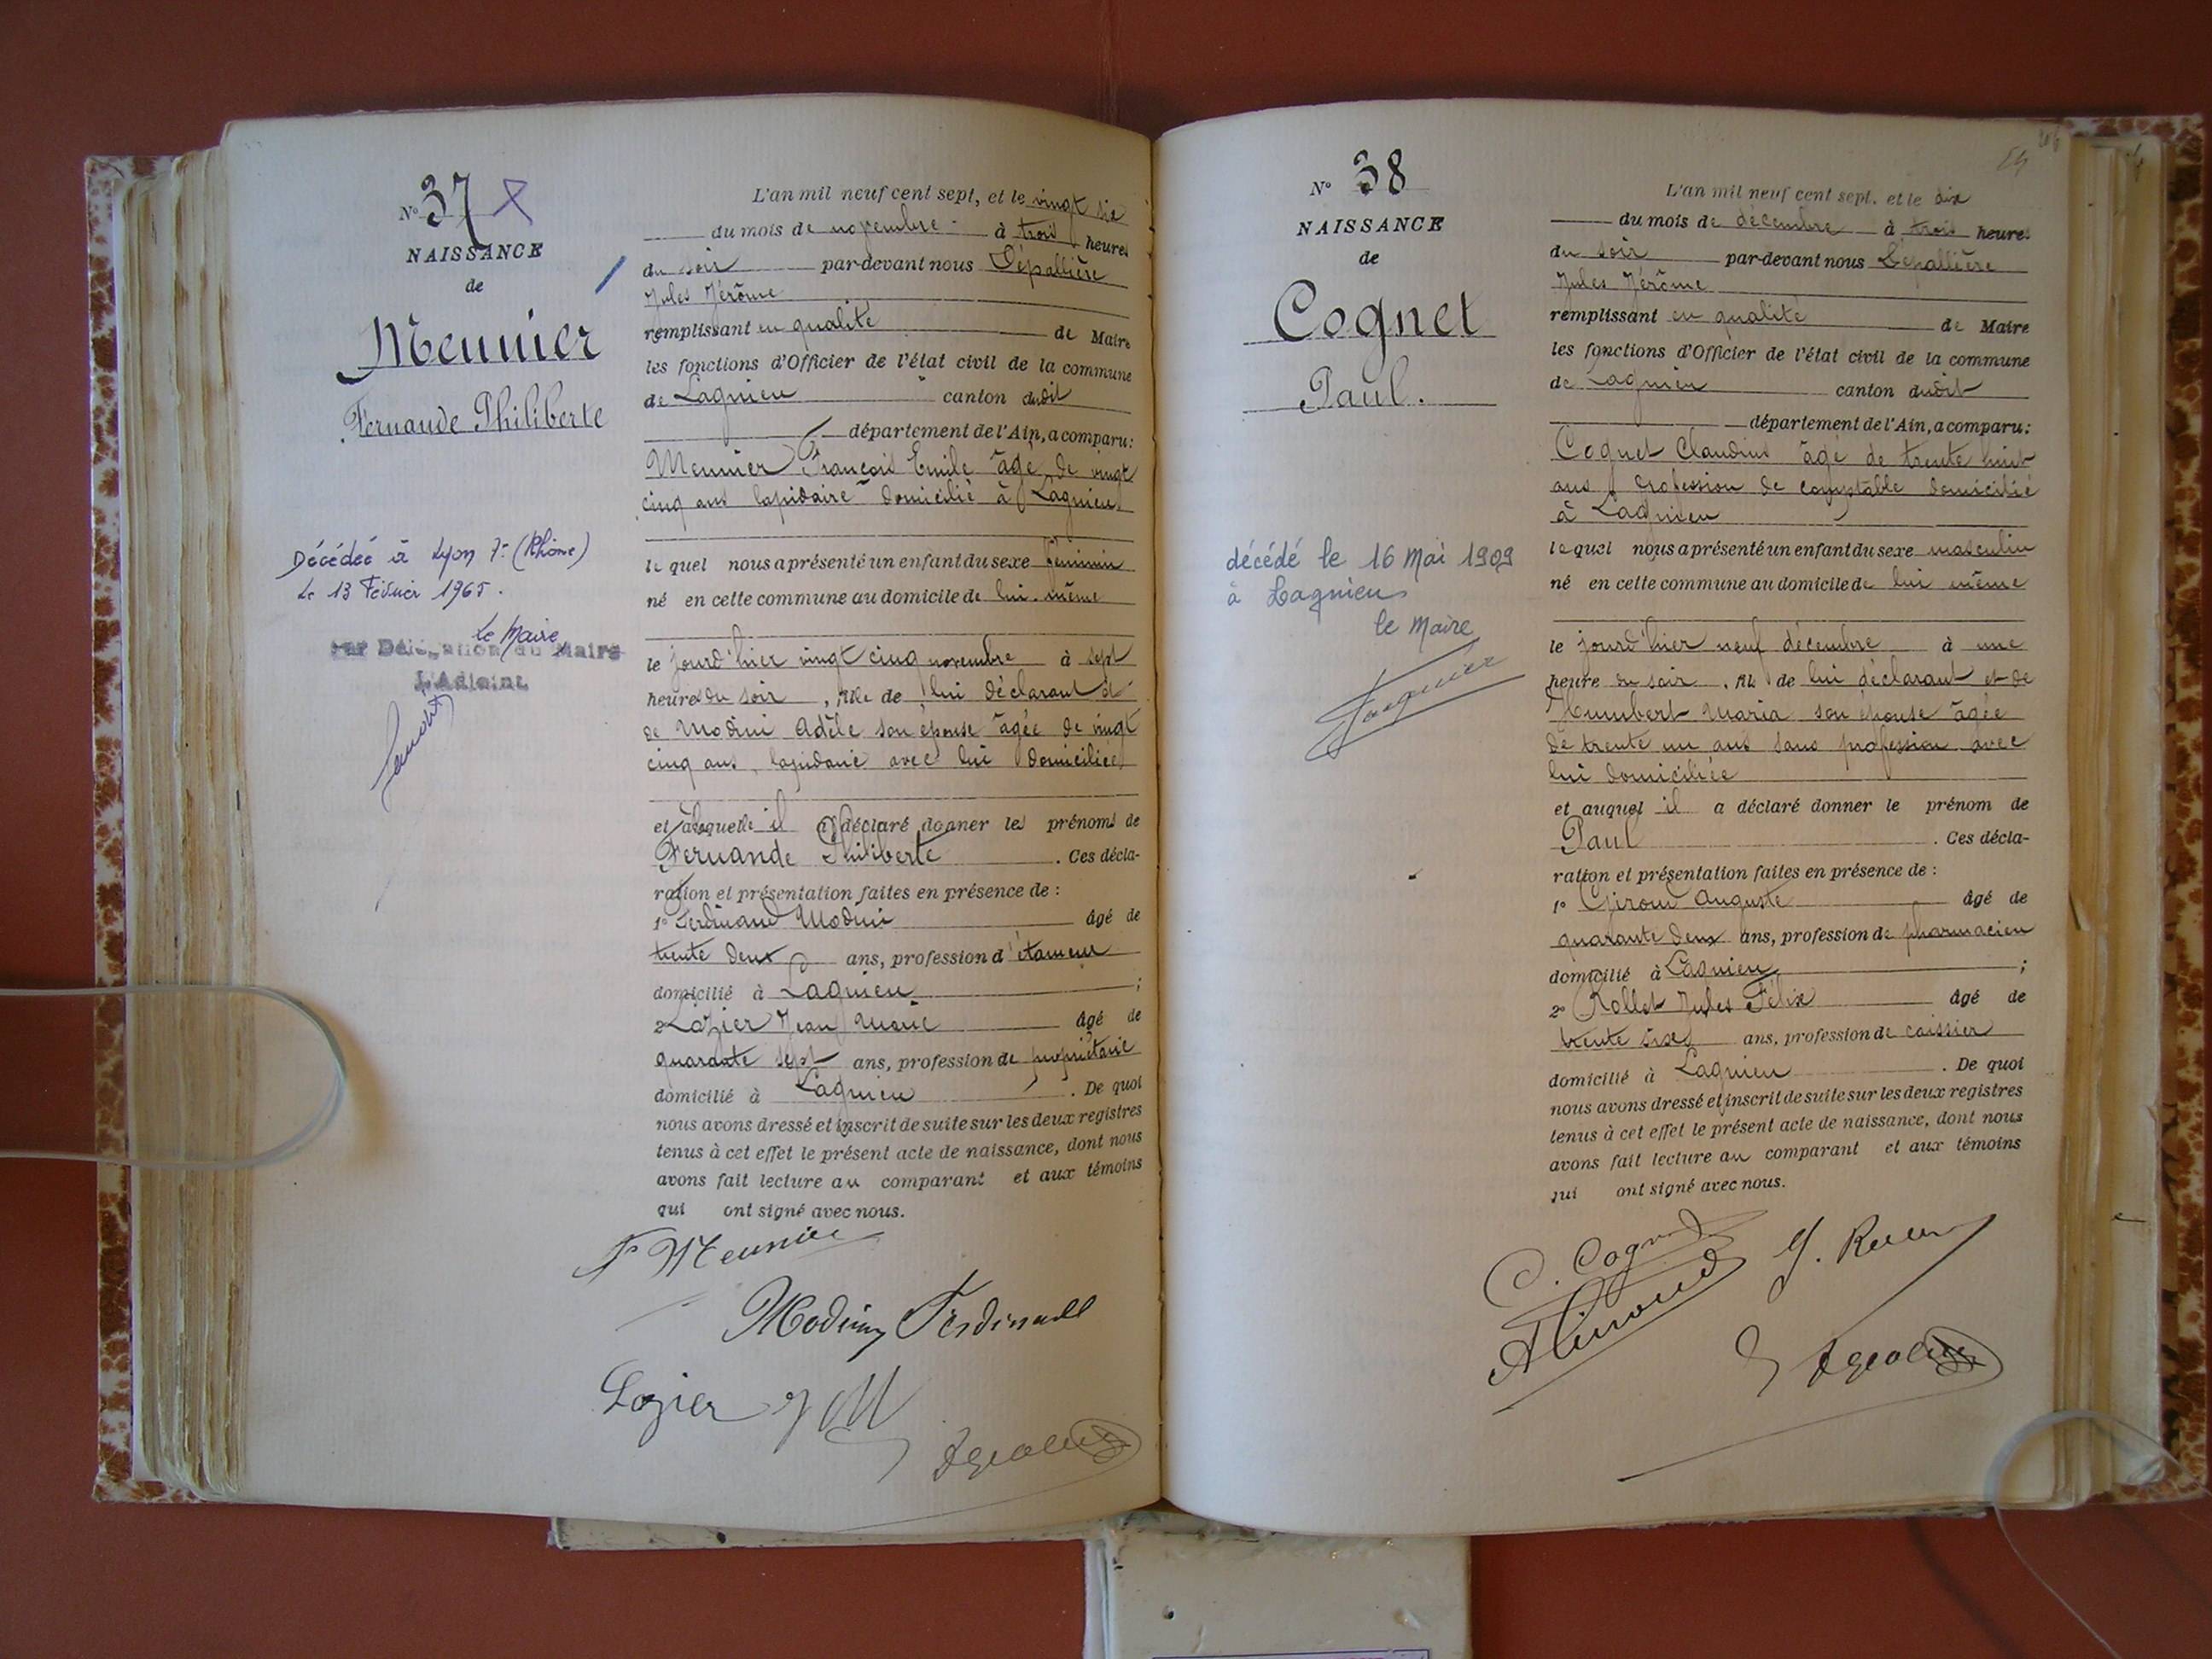 N° 37
NAISSANCE
de
Meunier
Fernande Philiberte
Décédée à Lyon 7e (Rhône)
Le 13 Février 1965.
Le Maire
Par Délégation du Maire
L'Adjoint
L'an mil neuf cent sept, et le vingt six
du mois de novembre à trois heures
du soir par-devant nous Dépallière
Jules Jérôme
remplissant en qualité de Maire
les fonctions d'Officier de l'état civil de la commune
de Lagnieu canton dudit
département de l'Ain, a comparu:
Meunier François Emile âgé de vingt
cinq ans lapidaire domicilié à Lagnieu
le quel nous a présenté un enfant du sexe féminin
né en cette commune au domicile de lui-même
le jourd'hier vingt cinq novembre à sept
heures du soir, fille de lui déclarant et
de Modini Adèle son épouse âgée de vingt
cinq ans, lapidaire avec lui domiciliée
et à laquelle il a déclaré donner les prénoms de
Fernande Philiberte. Ces décla-
ration et présentation faites en présence de:
1° Ferdinand Modini âgé de
trente deux ans, profession d'étameur
domicilié à Lagnieu;
2° Lozier Jean Marie âgé de
quarante sept ans, profession de propriétaire
domicilié à Lagnieu. De quoi
nous avons dressé et inscrit de suite sur les deux registres
tenus à cet effet le présent acte de naissance, dont nous
avons fait lecture au comparant et aux témoins
qui ont signé avec nous.
F Meunier
Modini Ferdinand
Lozier J M
N° 38
NAISSANCE
de
Cognet
Paul.
décédé le 16 Mai 1909
à Lagnieu
le Maire
L'an mil neuf cent sept, et le dix
du mois de décembre à trois heures
du soir par-devant nous Dépallière
Jules Jérôme
remplissant en qualité de Maire
les fonctions d'Officier de l'état civil de la commune
de Lagnieu canton dudit
département de l'Ain, a comparu:
Cognet Claudius âgé de trente huit
ans profession de comptable domicilié
à Lagnieu
le quel nous a présenté un enfant du sexe masculin
né en cette commune au domicile de lui même
le jourd'hier neuf décembre à une
heure du soir, fils de lui déclarant et de
Humbert Maria son épouse âgée
de trente un ans sans profession avec
lui domiciliée
et auquel il a déclaré donner le prénom de
Paul. Ces décla-
ration et présentation faites en présence de:
1° Giroud Auguste âgé de
quarante deux ans, profession de pharmacien
domicilié à Lagnieu;
2° Rollet Jules Félix âgé de
trente six ans, profession de caissier
domicilié à Lagnieu. De quoi
nous avons dressé et inscrit de suite sur les deux registres
tenus à cet effet le présent acte de naissance, dont nous
avons fait lecture au comparant et aux témoins
qui ont signé avec nous.
C. Cognet
A Giroud